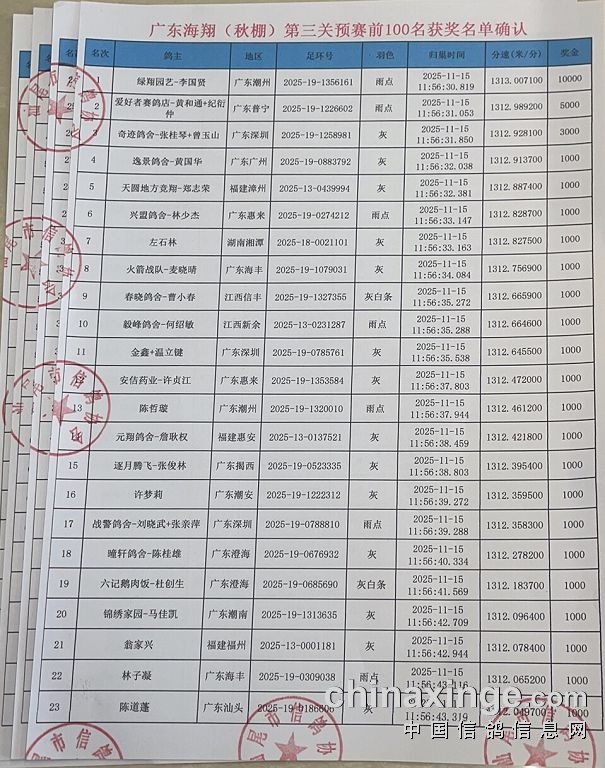 广东海翔（秋棚）第三关预赛前100名获奖名单确认
名次 鸽主 地区 足环号 羽色 归巢时间 分速(米/分) 奖金
1 绿翔园艺-李国贤 广东潮州 2025-19-1356161 雨点 2025-11-15 11:56:30.819 1313.007100 10000
2 爱好者赛鸽店-黄和通+纪衍仲 广东普宁 2025-19-1226602 雨点 2025-11-15 11:56:31.053 1312.989200 5000
奇迹鸽舍-张桂琴+曾玉山 广东深圳 2025-19-1258981 灰 2025-11-15 11:56:31.850 1312.928100 3000
4 逸景鸽舍-黄国华 广东广州 2025-19-0883792 灰 2025-11-15 11:56:32.038 1312.913700 1000
5 天圆地方竞翔-郑志荣 福建漳州 2025-13-0439994 灰 2025-11-15 11:56:32.381 1312.887400 1000
6 兴盟鸽舍-林少杰 广东惠来 2025-19-0274212 雨点 2025-11-15 11:56:33.147 1312.828700 1000
7 左石林 湖南湘潭 2025-18-0021101 灰 2025-11-15 11:56:33.163 1312.827500 1000
8 火箭战队-麦晓晴 广东海丰 2025-19-1079031 灰 2025-11-15 11:56:34.084 1312.756900 1000
9 春晓鸽舍-曹小春 江西信丰 2025-19-1327355 灰白条 2025-11-15 11:56:35.272 1312.665900 1000
10 毅峰鸽舍-何绍敏 江西新余 2025-13-0231287 雨点 2025-11-15 11:56:35.288 1312.664600 1000
11 金鑫+温立键 广东深圳 2025-19-0785761 灰 2025-11-15 11:56:35.538 1312.645500 1000
安信药业-许贞江 广东惠来 2025-19-1353584 灰 2025-11-15 11:56:37.803 1312.472000 1000
13 陈哲璇 广东潮州 2025-19-1320010 雨点 2025-11-15 11:56:37.944 1312.461200 1000
元翔鸽舍-詹耿权 福建惠安 2025-13-0137521 灰 2025-11-15 11:56:38.459 1312.421800 1000
15 逐月腾飞-张俊林 广东揭西 2025-19-0523335 灰 2025-11-15 11:56:38.803 1312.395400 1000
16 许梦莉 广东潮安 2025-19-1222312 灰 2025-11-15 11:56:39.272 1312.359500 1000
17 战警鸽舍-刘晓武+张亲萍 广东深圳 2025-19-0788810 雨点 2025-11-15 11:56:39.288 1312.358300 1000
18 瞳轩鸽舍-陈桂雄 广东澄海 2025-19-0676932 灰 2025-11-15 11:56:40.334 1312.278200 1000
19 六记鹅肉饭-杜创生 广东澄海 2025-19-0685690 灰白条 2025-11-15 11:56:41.569 1312.183700 1000
20 锦绣家园-马佳凯 广东潮南 2025-19-1313635 灰 2025-11-15 11:56:42.709 1312.096400 1000
21 翁家兴 福建福州 2025-13-0001181 灰 2025-11-15 11:56:42.944 1312.078400 1000
22 林子凝 广东海丰 2025-19-0309038 雨点 2025-11-15 11:56:43.116 1312.065200 1000
23 陈道蓬 广东汕头 灰 2025-11-15 11:56:43.319 1000
chinaxinge.com
中国信鸽信息网